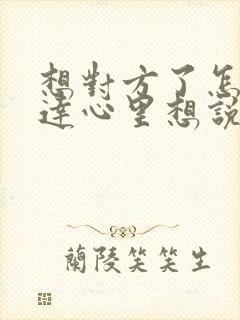 想對方了怎
達心里想說
蘭陵笑笑生